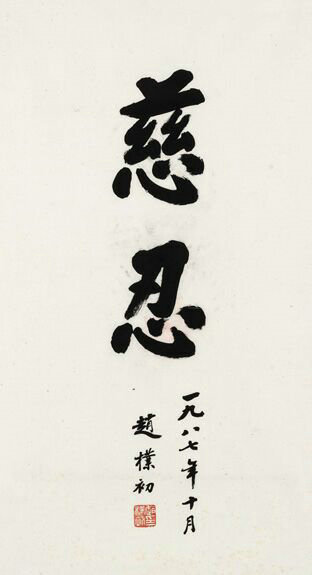 慈忍
一九八七年十月
趙樸初